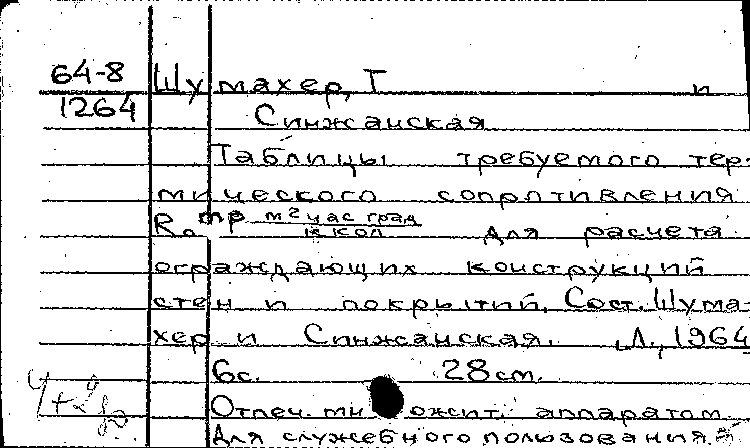 64-8
1264
Шумахер, Т и
Синжанская
Таблицы требуемого тер-
мического сопротивления
R₀ᵐᵖ м² час град / ккол для расчета
ограждающих конструкций
стен и покрытий. Сост. Шума-
хер и Синжанская. Л., 1964
6с. 28см.
Отпеч. мн ожит. аппаратом
Для служебного пользования.